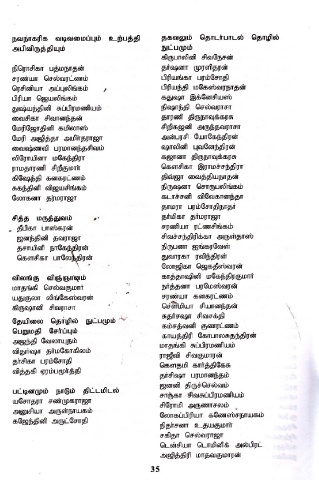 நவநாகரிக வடிவமைப்பும் உற்பத்தி
அபிவிருத்தியும்
நிரொசிகா பத்மநாதன்
சரண்யா செல்வரட்ணம்
ரெசினியா அப்புலிங்கம்
பிரியா ஜெயலிங்கம்
துஷ்யந்தினி சுப்பிரமணியம்
வைசிகா சிவானந்தன்
மேரிஜோதினி
மேரி அஜித்தா
வைஷ்ணவி பரமானந்தசிவம்
லிரோயினா மகேந்திரா
ராமதாரணி சிறீகுமார்
கிஷேத்தி கனகரட்ணம்
சுகந்தினி விஜயசிங்கம்
லோகனா தர்மராஜா
சித்த மருத்துவம்
தீபிகா பாஸ்கரன்
ஜனந்தினி தவராஜா
தசாயினி நாகேந்திரன்
கௌசிகா பாலேந்திரன்
விலங்கு விஞ்ஞானம்
மாதங்கி செல்வகுமார்
யதுகுலா லிங்கேஸ்வரன்
கிருஷானி சிவராசா
தேயிலை தொழில் நுட்பமும்
பெறுமதி சேர்ப்பும்
அஜந்தி வேலாயுதம்
விதுர்ஷா தர்மகோகிலம்
தர்சிகா பரம்சோதி
வித்தகி ஏரம்பமூர்த்தி
பட்டினமும் நாடும் திட்டமிடல்
யசோதரா சண்முகராஜா
அனுசியா அருள்நாயகம்
கஜேந்தினி அருட்சோதி
தகவலும் தொடர்பாடல் தொழில்
நுட்பமும்
கிருபாலினி சிவநேசன்
தர்ஷனா முரளிதரன்
பிரியங்கா பரம்சோதி
பிரியந்தி மகேஸ்வரநாதன்
கதுஷா இக்னேசியஸ்
நிஷாந்தி செல்வராசா
தாரணி திருநாவுக்கரசு
சிறிகஜனி அருந்தவராசா
அன்பரசி யோகேந்திரன்
ஷாலினி புவனேந்திரன்
சுஜானா திருநாவுக்கரசு
கௌசிகா இராமச்சந்திரா
திவ்ஜா வைத்தியநாதன்
நிருஷனா சொரூபலிங்கம்
சுடர்ச்சனி விவேகானந்தா
தாமரா பரம்சோதிநாதர்
தர்மிகா தர்மராஜா
சரணியா ரட்ணசிங்கம்
சிவச்சந்திரிக்கா அருள்தாஸ்
நிருபனா ஐங்கரவேள்
துவாரகா ரவிந்திரன்
லோஜிகா ஜெகதீஸ்வரன்
காத்தாஷினி மகேந்திரகுமார்
நர்த்தனா பரமேஸ்வரன்
சரண்யா கனகரட்ணம்
செவ்மியா சிபானந்தன்
சுதர்சஷா சிவசக்தி
கம்சத்வனி குணரட்ணம்
காயத்திரி கோபாலசுதந்திரன்
மாதங்கி சுப்பிரமணியம்
ராஜீவி சிவகுமாரன்
கௌதமி கார்த்திகேசு
தர்சிஷா பரமானந்தம்
ஜனனி திருச்செல்வம்
சாருகா சிவசுப்பிரமணியம்
சிரோமி அருணாசலம்
லோகப்பிரியா கணேஸ்நாயகம்
நிதர்சனா உதயகுமார்
சகிதா செல்வராஜா
டென்சியா டொமினிக் அல்பிரட்
அஜித்திரி மாதவகுமாரன்
35